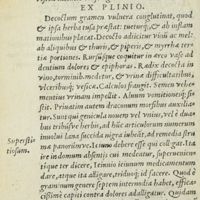 EX PLINIO.
Decoctum gramen vulnera conglutinat, quod
& ipsa herba tusa præstat: tueturq́; & ab inflam
mationibus plaças. Decocto adiicitur vinū ac mel:
ab aliquibus & thuris, & piperis, & myrrhæ ter-
tiæ portiones. Rursúsque coquitur in æreo vase ad
dentium dolores & epiphoras. Radix decocta in
vino, torminib. medetur, & vrinæ difficultatibus,
vlceribusq́; vesicæ. Calculos frangit. Semen vehe-
mentius vrinam impellit. Aluum vomitionesq́; si-
stit. Priuatim autem draconum morsibus auxilia-
tur. Sunt qui genicula nouem vel vnius, vel è duo-
bus tribusve herbis, ad hūc articulorum numerum
inuolui lana succida nigra iubeāt, ad remedia stru-
mæ panorūmve. Ieiuno debere esse qui colligat. Ita
Supersti-
tiosum.
ire in domum absentis cui medeatur, superuenien-
tíque ter dicere, Ieiuno ieiunum medicamentum
dare, atque ita alligare, triduóq́; id facere. Quod è
graminum genere septem internodia habet, effica-
cissimè capiti contra dolores adalligatur. Quidam